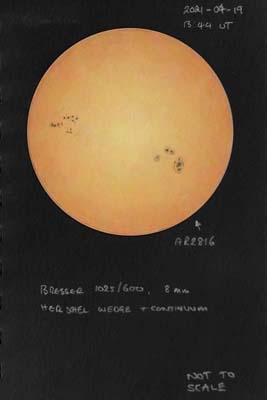 2021-04-19
13:44 UT
AR2816
BRESSER 102S/600, 8mm
HERSCHEL WEDGE + CONTINUUM
NOT TO
SCALE